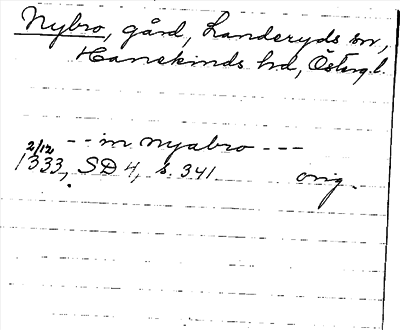 Nybro, gård, Landeryds sn,
Hanekinds hd, Österg.l.
- - in nyabro - - -
2/12
1333, SD 4, s. 341 orig.